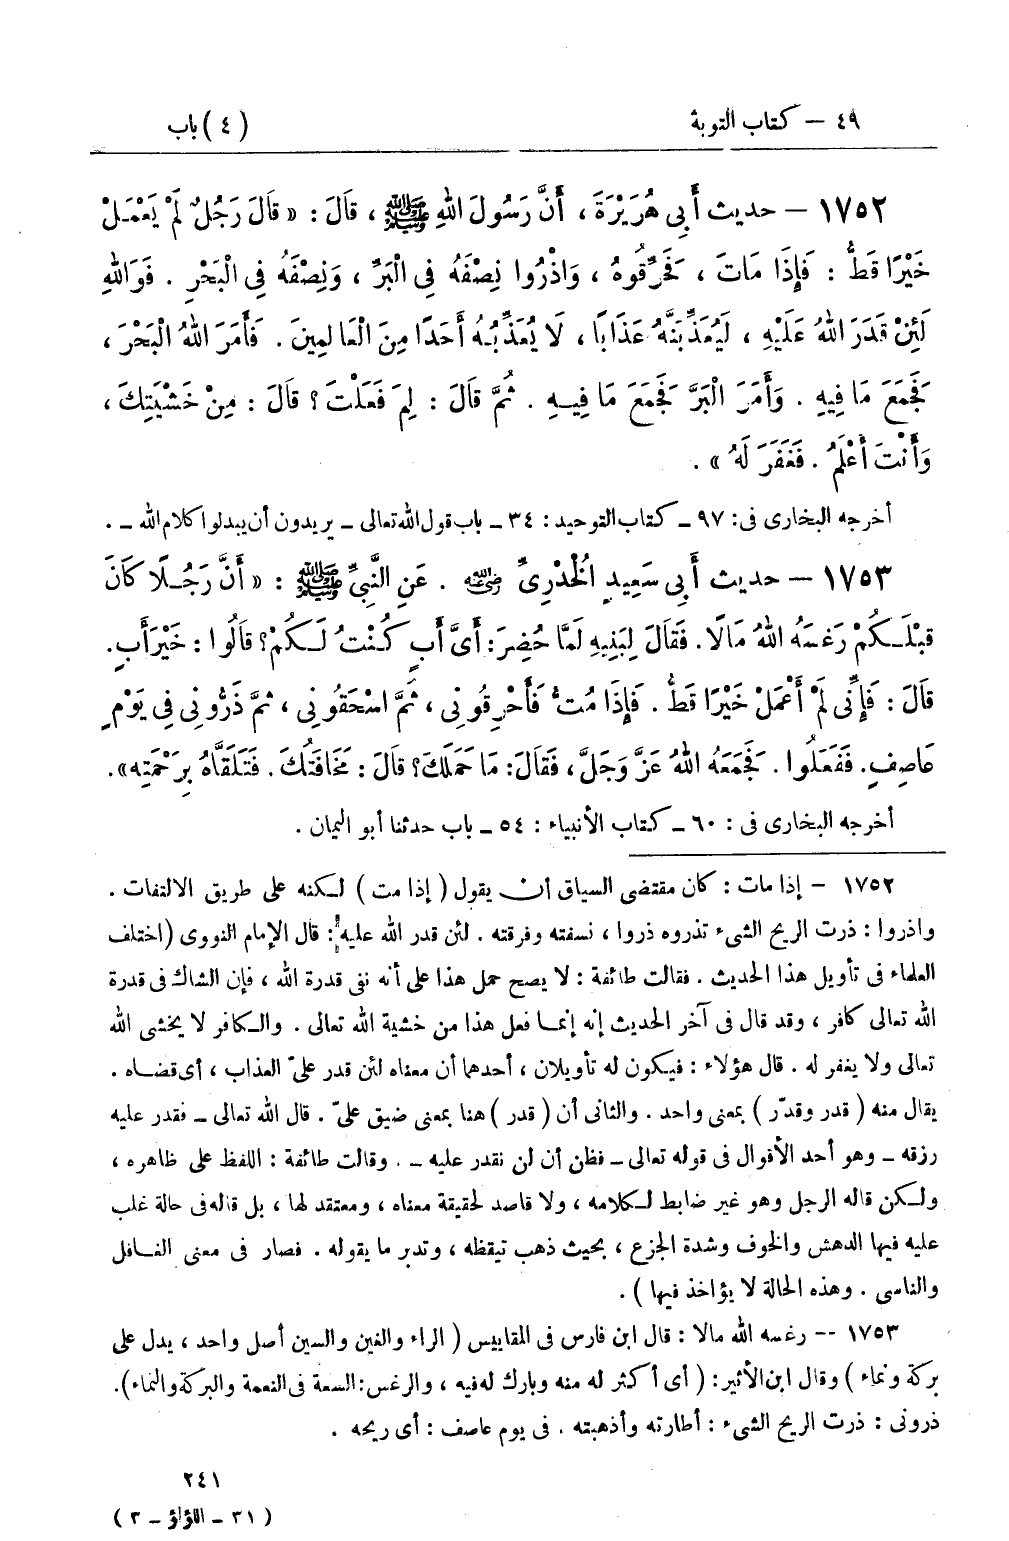 ٤٩ – كتاب التوبة
(٤) باب
١٧٥٢ – حديث أَبِى هُرَيْرَةَ ، أَنَّ رَسُولَ اللهِ ﷺ ، قَالَ : « قَالَ رَجُلٌ لَمْ يَعْمَلْ
خَيْرًا قَطُّ : فَإِذَا مَاتَ ، فَحَرِّقُوهُ ، وَاذْرُوا نِصْفَهُ فِى الْبَرِّ ، وَنِصْفَهُ فِى الْبَحْرِ . فَوَاللهِ
لَئِنْ قَدَرَ اللهُ عَلَيْهِ ، لَيُعَذِّبَنَّهُ عَذَابًا ، لَا يُعَذِّبُهُ أَحَدًا مِنَ الْعَالَمِينَ . فَأَمَرَ اللهُ الْبَحْرَ ،
فَجَمَعَ مَا فِيهِ . وَأَمَرَ الْبَرَّ فَجَمَعَ مَا فِيهِ . ثُمَّ قَالَ : لِمَ فَعَلْتَ ؟ قَالَ : مِنْ خَشْيَتِكَ ،
وَأَنْتَ أَعْلَمُ . فَغَفَرَ لَهُ » .
أخرجه البخارى فى : ٩٧ ـ كتاب التوحيد : ٣٤ ـ باب قول الله تعالى ـ يريدون أن يبدلوا كلام الله ـ .
١٧٥٣ – حديث أَبِى سَعِيدٍ الْخُدْرِىِّ رضي الله عنه . عَنِ النَّبِىِّ ﷺ : « أَنَّ رَجُلًا كَانَ
قَبْلَكُمْ رَغَسَهُ اللهُ مَالًا . فَقَالَ لِبَنِيهِ لَمَّا حُضِرَ : أَىَّ أَبٍ كُنْتُ لَكُمْ؟ قَالُوا : خَيْرَ أَبٍ .
قَالَ : فَإِنِّى لَمْ أَعْمَلْ خَيْرًا قَطُّ . فَإِذَا مُتُّ فَأَحْرِقُونِى ، ثُمَّ اسْحَقُونِى ، ثُمَّ ذَرُّونِى فِى يَوْمٍ
عَاصِفٍ . فَفَعَلُوا . فَجَمَعَهُ اللهُ عَزَّ وَجَلَّ ، فَقَالَ : مَا حَمَلَكَ؟ قَالَ : مَخَافَتُكَ . فَتَلَقَّاهُ بِرَحْمَتِهِ» .
أخرجه البخارى فى : ٦٠ ـ كتاب الأنبياء : ٥٤ ـ باب حدثنا أبو اليمان .
١٧٥٢ – إذا مات : كان مقتضى السياق أن يقول ( إذا مت ) لكنه على طريق الالتفات .
واذروا : ذرت الريح الشىء تذروه ذروا ، نسفته وفرقته . لئن قدر الله عليه : قال الإمام النووى (اختلف
العلماء فى تأويل هذا الحديث . فقالت طائفة : لا يصح حمل هذا على أنه نفى قدرة الله ، فإن الشاك فى قدرة
الله تعالى كافر ، وقد قال فى آخر الحديث إنه إنما فعل هذا من خشية الله تعالى . والكافر لا يخشى الله
تعالى ولا يغفر له . قال هؤلاء : فيكون له تأويلان ، أحدهما أن معناه لئن قدر علىّ العذاب ، أى قضاه .
يقال منه ( قدر وقدّر ) بمعنى واحد . والثانى أن ( قدر ) هنا بمعنى ضيق علىّ . قال الله تعالى ـ فقدر عليه
رزقه ـ وهو أحد الأقوال فى قوله تعالى ـ فظن أن لن نقدر عليه ـ . وقالت طائفة : اللفظ على ظاهره ،
ولكن قاله الرجل وهو غير ضابط لكلامه ، ولا قاصد لحقيقة معناه ، ومعتقد لها ، بل قاله فى حالة غلب
عليه فيها الدهش والخوف وشدة الجزع ، بحيث ذهب تيقظه ، وتدبر ما يقوله . فصار فى معنى الغافل
والناسى . وهذه الحالة لا يؤاخذ فيها ) .
١٧٥٣ -- رغسه الله مالا : قال ابن فارس فى المقاييس ( الراء والغين والسين أصل واحد ، يدل على
بركة ونماء ) وقال ابن الأثير : ( أى أكثر له منه وبارك له فيه ، والرغس : السعة فى النعمة والبركة والنماء) .
ذرونى : ذرت الريح الشىء : أطارته وأذهبته . فى يوم عاصف : أى ريحه .
٢٤١
( ٣١ – اللؤلؤ – ٣ )